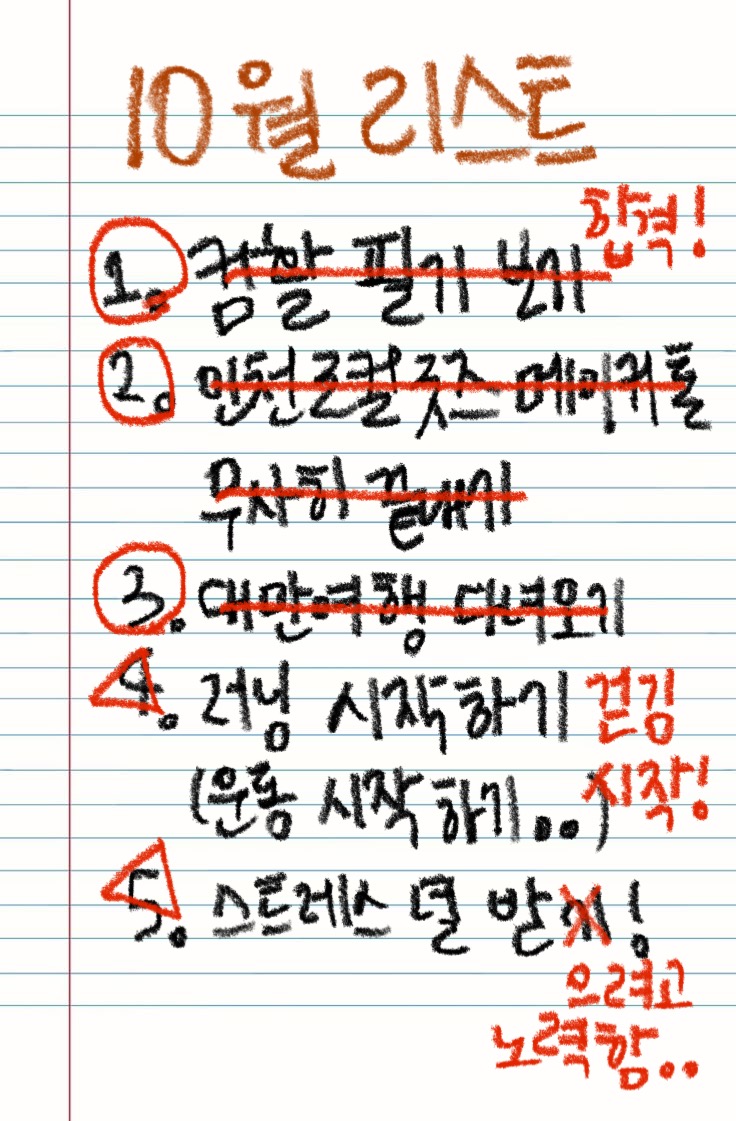 10월 리스트
합격!
1. 컴활 필기 보기
2. 인천로컬굿즈 메이커톤
무사히 끝내기
3. 대만여행 다녀오기
4. 러닝 시작하기 걷김
(운동 시작하기..) 시작!
5. 스트레스 덜 받기!
으려고
노력함..